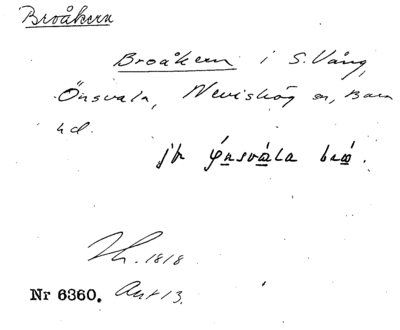 Broåkern
Broåkern i S. Vång,
Önsvala, Nevishög sn, Bara
hd.
jfr
Lh. 1818
Nr 6360. Akt 13.